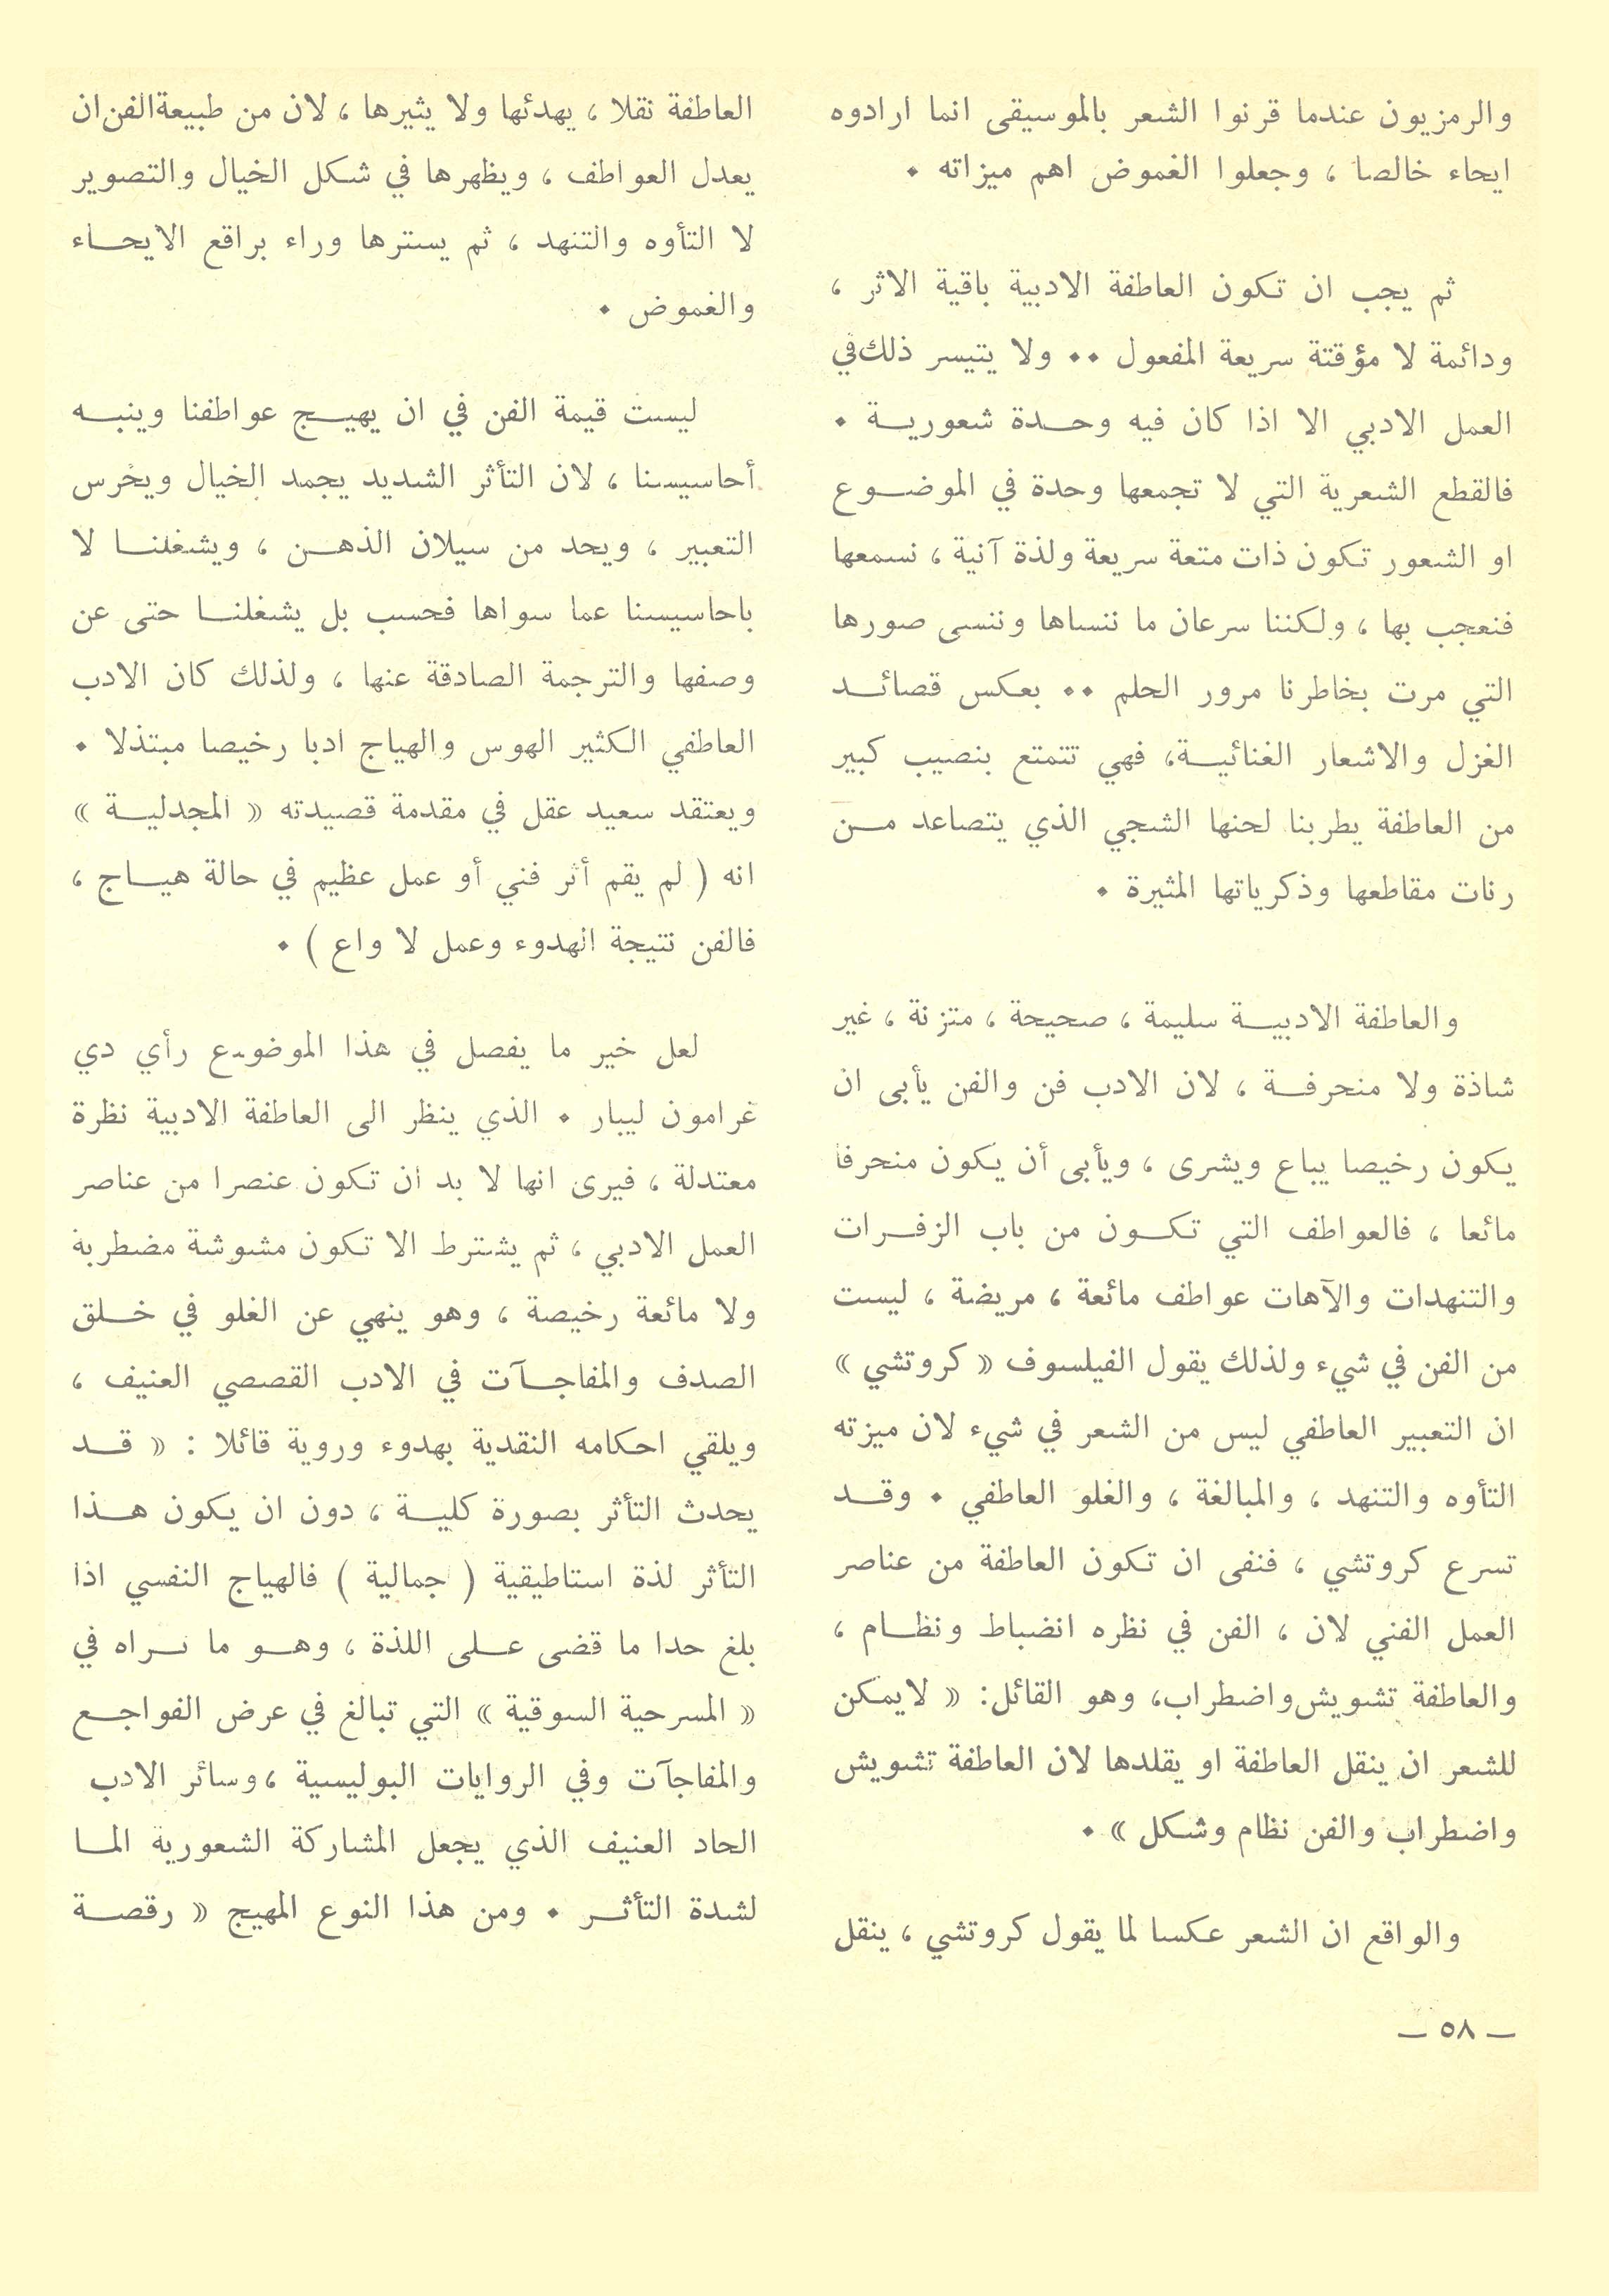 والرمزيون عندما قرنوا الشعر بالموسيقى انما ارادوه
ايحاء خالصا ، وجعلوا الغموض اهم ميزاته .
ثم يجب ان تكون العاطفة الادبية باقية الاثر ،
ودائمة لا مؤقتة سريعة المفعول .. ولا يتيسر ذلك في
العمل الادبي الا اذا كان فيه وحدة شعورية .
فالقطع الشعرية التي لا تجمعها وحدة في الموضوع
او الشعور تكون ذات متعة سريعة ولذة آنية ، نسمعها
فنعجب بها ، ولكننا سرعان ما ننساها وننسى صورها
التي مرت بخاطرنا مرور الحلم .. بعكس قصائد
الغزل والاشعار الغنائية، فهي تتمتع بنصيب كبير
من العاطفة يطربنا لحنها الشجي الذي يتصاعد من
رنات مقاطعها وذكرياتها المثيرة .
والعاطفة الادبية سليمة ، صحيحة ، متزنة ، غير
شاذة ولا منحرفة ، لان الادب فن والفن يأبى ان
يكون رخيصا يباع ويشرى ، ويأبى أن يكون منحرفا
مائعا ، فالعواطف التي تكون من باب الزفرات
والتنهدات والآهات عواطف مائعة ، مريضة ، ليست
من الفن في شيء ولذلك يقول الفيلسوف « كروتشي »
ان التعبير العاطفي ليس من الشعر في شيء لان ميزته
التأوه والتنهد ، والمبالغة ، والغلو العاطفي . وقد
تسرع كروتشي ، فنفى ان تكون العاطفة من عناصر
العمل الفني لان ، الفن في نظره انضباط ونظام ،
والعاطفة تشويش واضطراب، وهو القائل: « لايمكن
للشعر ان ينقل العاطفة او يقلدها لان العاطفة تشويش
واضطراب والفن نظام وشكل » .
والواقع ان الشعر عكسا لما يقول كروتشي ، ينقل
العاطفة نقلا ، يهدئها ولا يثيرها ، لان من طبيعة الفن ان
يعدل العواطف ، ويظهرها في شكل الخيال والتصوير
لا التأوه والتنهد ، ثم يسترها وراء براقع الايحاء
والغموض .
ليست قيمة الفن في ان يهيج عواطفنا وينبه
أحاسيسنا ، لان التأثر الشديد يجمد الخيال ويخرس
التعبير ، ويحد من سيلان الذهن ، ويشغلنا لا
باحاسيسنا عما سواها فحسب بل يشغلنا حتى عن
وصفها والترجمة الصادقة عنها ، ولذلك كان الادب
العاطفي الكثير الهوس والهياج ادبا رخيصا مبتذلا .
ويعتقد سعيد عقل في مقدمة قصيدته « المجدلية »
انه ( لم يقم أثر فني أو عمل عظيم في حالة هياج ،
فالفن نتيجة الهدوء وعمل لا واع ) .
لعل خير ما يفصل في هذا الموضوع رأي دي
غرامون ليبار . الذي ينظر الى العاطفة الادبية نظرة
معتدلة ، فيرى انها لا بد ان تكون عنصرا من عناصر
العمل الادبي ، ثم يشترط الا تكون مشوشة مضطربة
ولا مائعة رخيصة ، وهو ينهي عن الغلو في خلق
الصدف والمفاجآت في الادب القصصي العنيف ،
ويلقي احكامه النقدية بهدوء وروية قائلا : « قد
يحدث التأثر بصورة كلية ، دون ان يكون هذا
التأثر لذة استاطيقية ( جمالية ) فالهياج النفسي اذا
بلغ حدا ما قضى على اللذة ، وهو ما نراه في
« المسرحية السوقية » التي تبالغ في عرض الفواجع
والمفاجآت وفي الروايات البوليسية ، وسائر الادب
الحاد العنيف الذي يجعل المشاركة الشعورية الما
لشدة التأثر . ومن هذا النوع المهيج « رقصة
— ٥٨ —